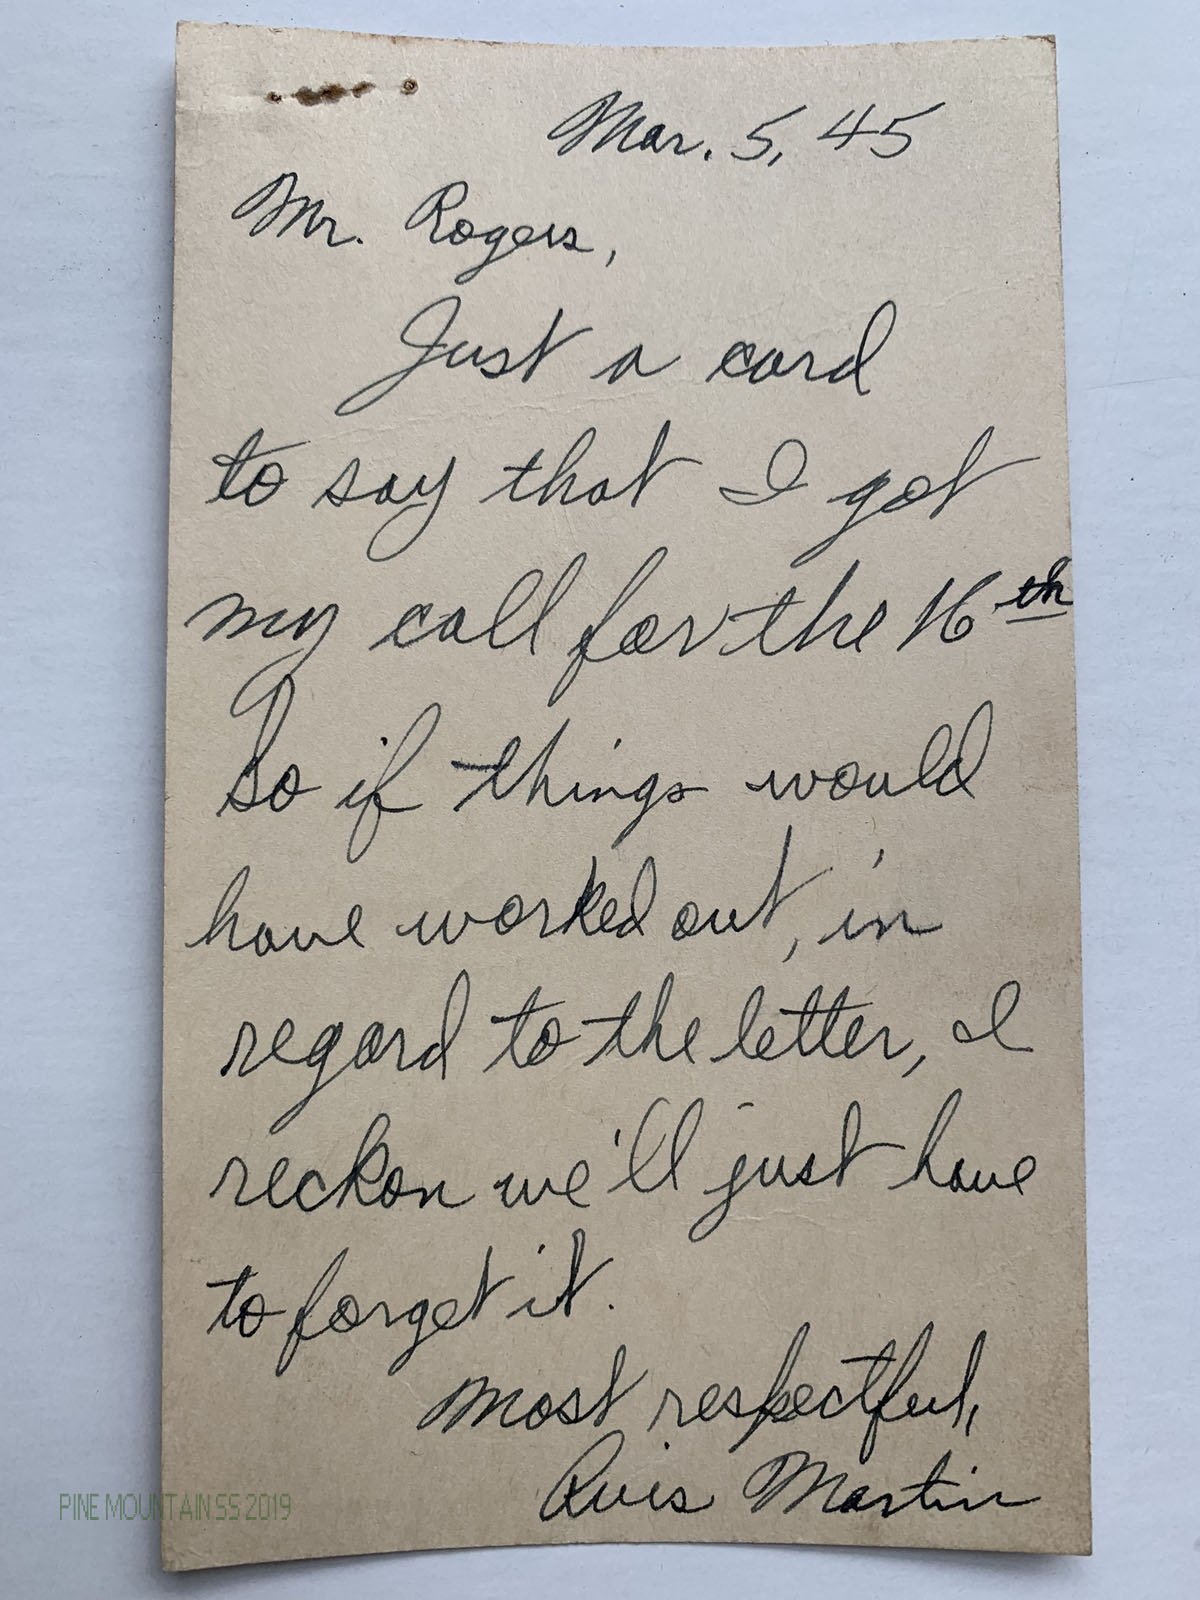 Mar. 5, 45
Mr. Rogers,
Just a card
to say that I got
my call for the 16th
So if things would
have worked out, in
regard to the letter, I
reckon we'll just have
to forget it.
Most respectful,
Avis Martin
PINE MOUNTAIN SS 2019